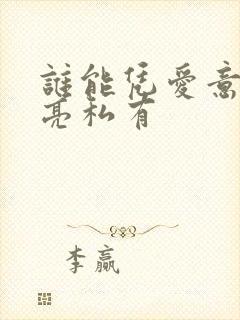 誰能凭愛意
亮私有
李赢